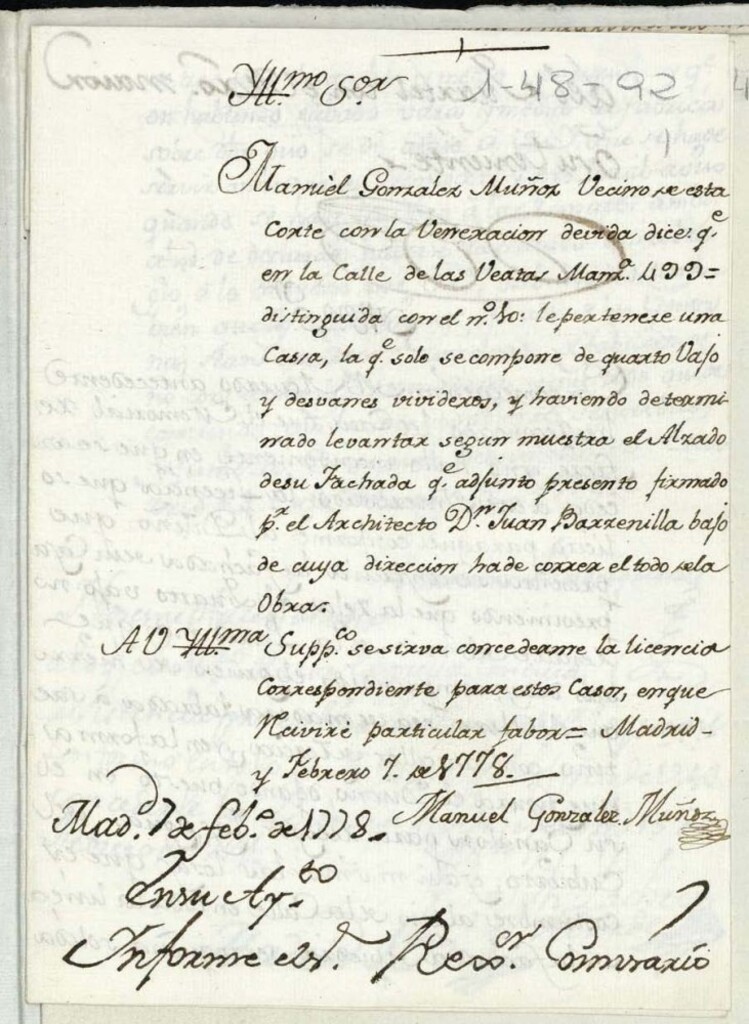 Yll.mo Sor
1-48-92
Manuel Gonzalez Muñoz Vecino de esta
Corte con la Veneracion devida dice: q.e
en la Calle de las Veatas Manz.a 499=
distinguida con el n.o 10: le pertenece una
Cassa, la q.e solo se compone de quarto Vajo
y desvanes vivideros, y haviendo determi
nado levantar segun muestra el Alzado
de su Fachada q.e adjunto presento firmado
p.r el Architecto D.n Juan Barrenilla bajo
de cuya direccion ha de correr el todo de la
Obra.
A V Yll.ma Supp.co se sirva concederme la licencia
Correspondiente para estos Casos, en que
Recivire particular fabor= Madrid
y Febrero 7. de 1778.
Manuel Gonzalez Muñoz
Mad.d 7 de feb.o de 1778.
En su Ay.to
Informe el S.r Rex.or Comisario